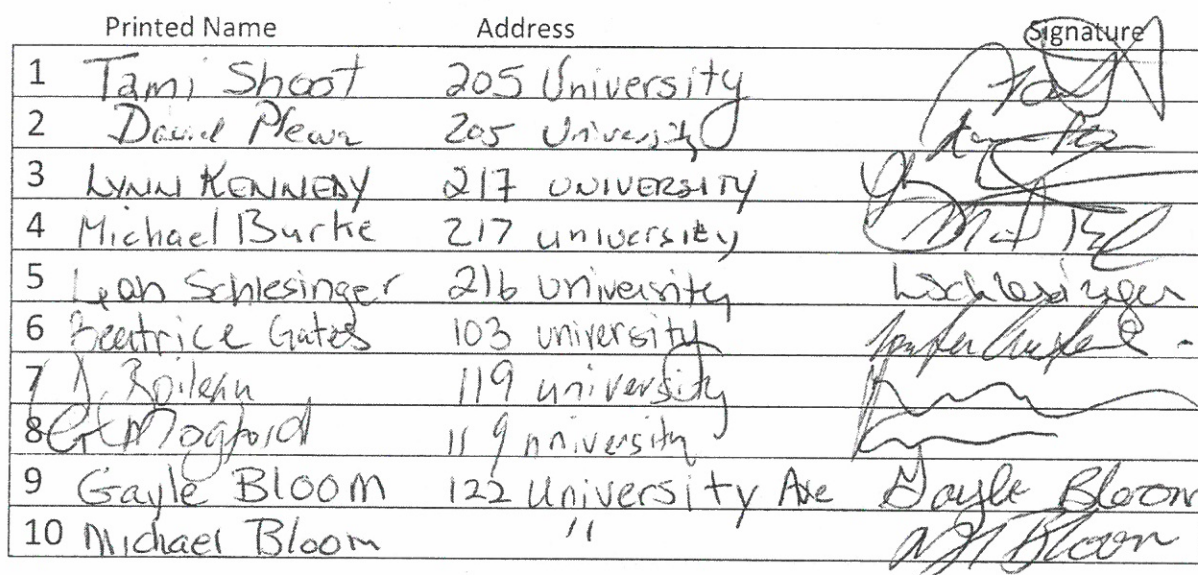 Printed Name Address Signature
1 Tami Shoot 205 University
2 David Plewa 205 University
3 LYNN KENNEDY 217 UNIVERSITY
4 Michael Burke 217 university
5 Leah Schlesinger 216 University LSchlesinger
6 Beatrice Gates 103 university
7 119 university
8 Mogford 119 university
9 Gayle Bloom 122 University Ave Gayle Bloom
10 Michael Bloom " Bloom